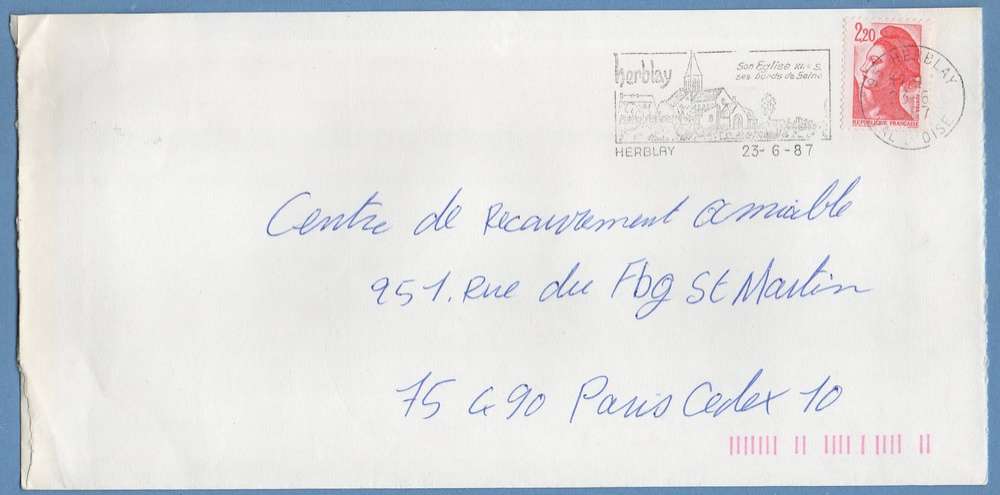 herblay
Son Eglise XI e S.
ses bords de Seine
HERBLAY 23-6-87
2,20
REPUBLIQUE FRANÇAISE
HERBLAY
OISE
Centre de Recouvrement amiable
951. Rue du Fbg St Martin
75 490 Paris Cedex 10